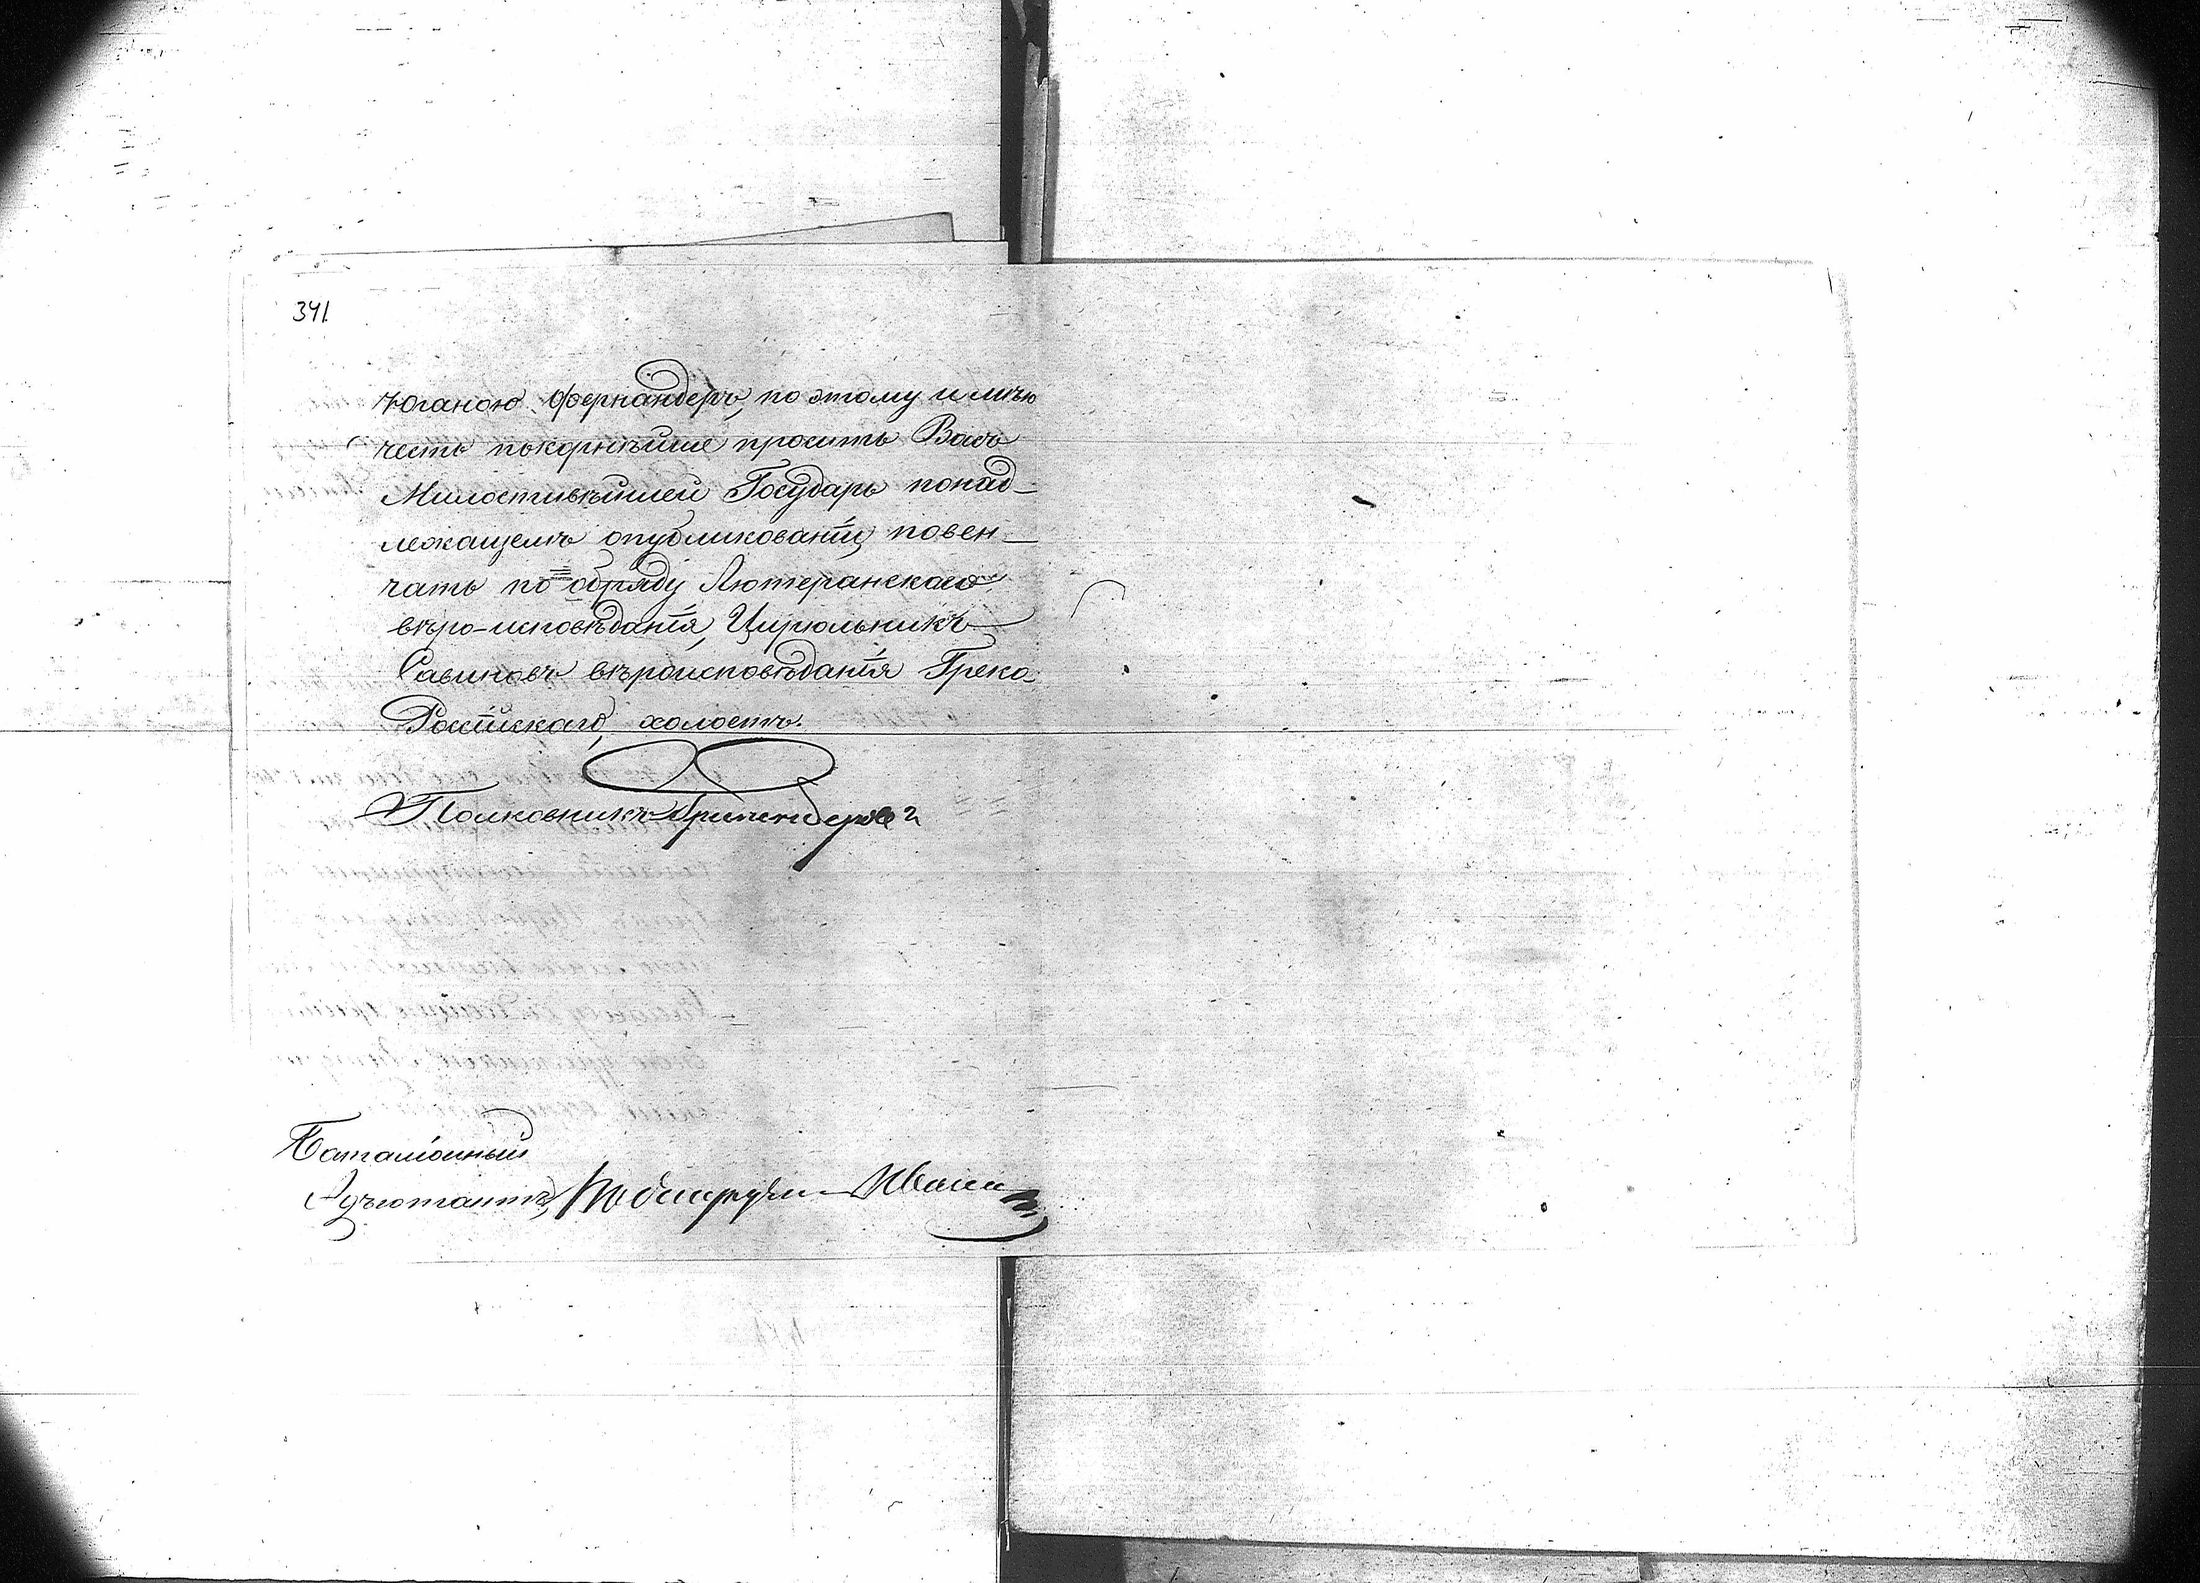 341
Юганою Фернандеръ, по этому имѣю
честь покорнѣйше просить Васъ
Милостивѣйшей Государь понад-
лежащемъ опубликованіи, повен-
чать по обряду Лютеранскаго
вѣро-исповѣданія, Цирюльникъ
Савиновъ вѣроисповѣданія Греко
Россійскаго, холостъ.
Полковникъ
Баталіонный
Адъютантъ,